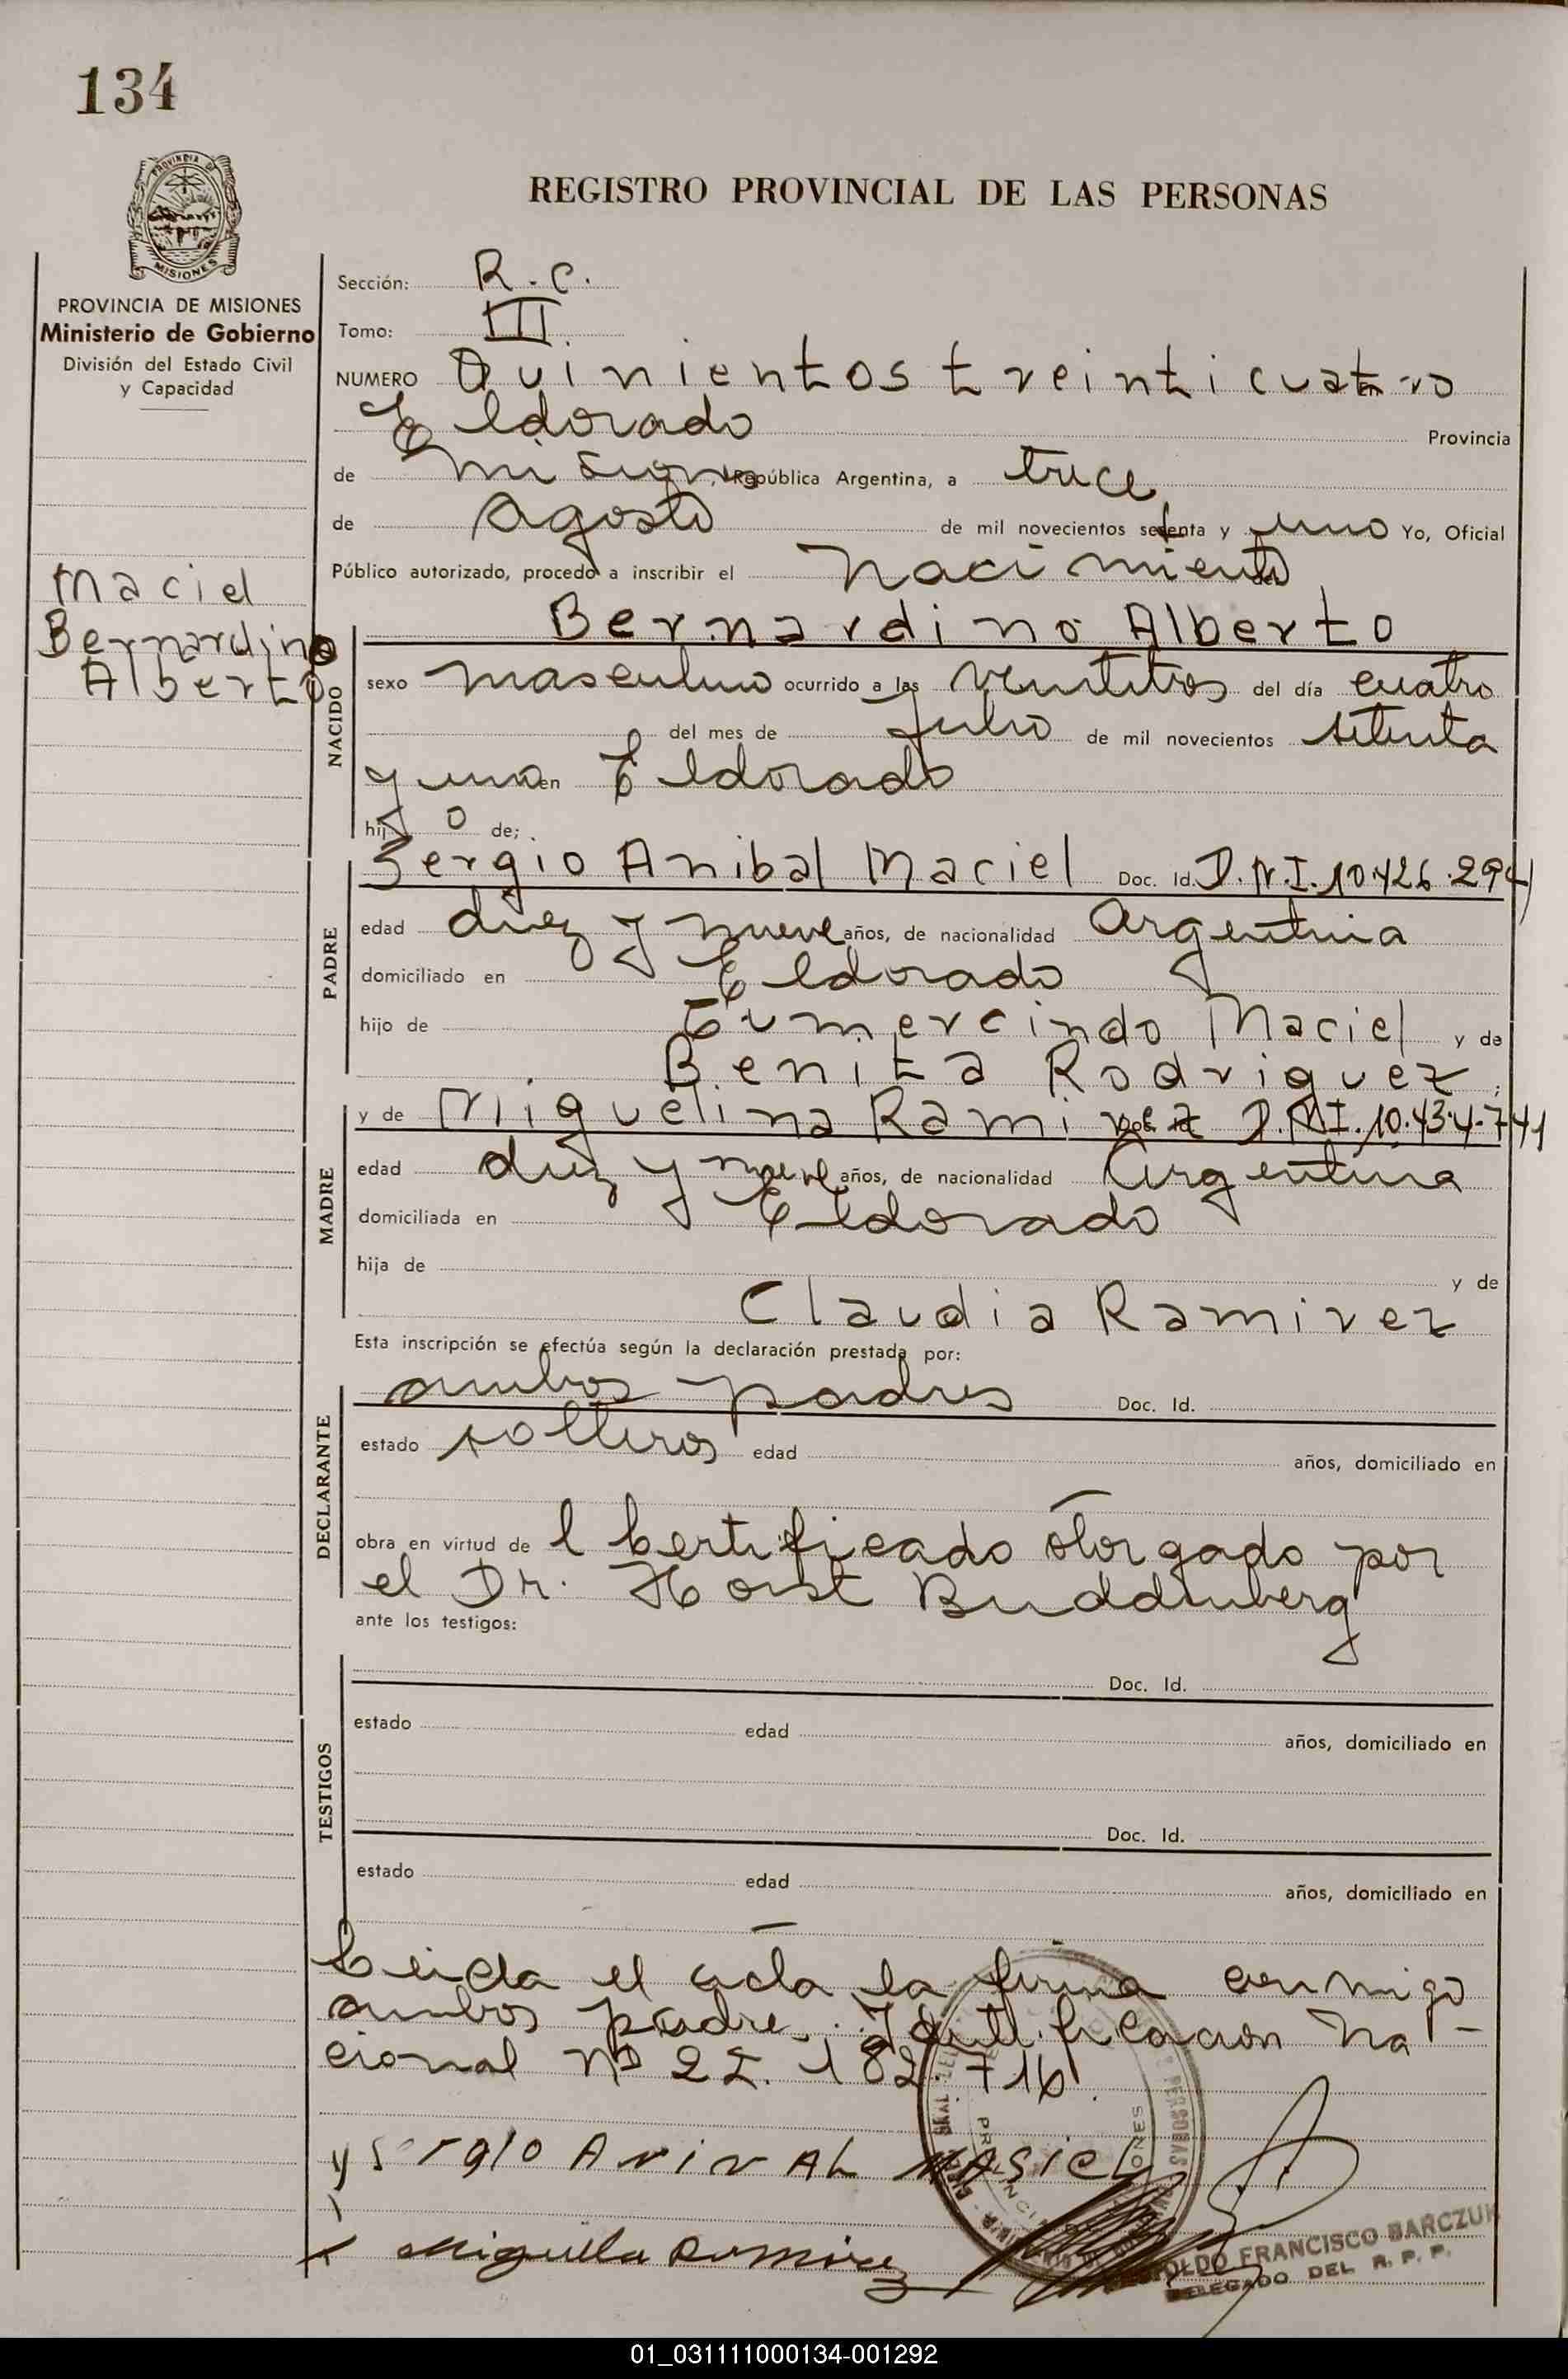 134
PROVINCIA DE
MISIONES
REGISTRO PROVINCIAL DE LAS PERSONAS
PROVINCIA DE MISIONES
Ministerio de Gobierno
División del Estado Civil
y Capacidad
Maciel
Bernardino
Alberto
Sección: R.C.
Tomo: III
NUMERO Quinientos treinticuatro
Eldorado Provincia
de Misiones, República Argentina, a trece
de Agosto de mil novecientos setenta y uno Yo, Oficial
Público autorizado, procedo a inscribir el Nacimiento
Bernardino Alberto
NACIDO
sexo masculino ocurrido a las veintitres del día cuatro
del mes de Julio de mil novecientos setenta
y uno en Eldorado
hijo de;
Sergio Anibal Maciel Doc. Id. D.N.I. 10.426.294
PADRE
edad diez y nueve años, de nacionalidad Argentina
domiciliado en Eldorado
hijo de Eumercindo Maciel y de
Benita Rodriguez;
y de Miguelina Ramirez D.N.I. 10.434.741
MADRE
edad diez y nueve años, de nacionalidad Argentina
domiciliada en Eldorado
hija de y de
Claudia Ramirez
Esta inscripción se efectúa según la declaración prestada por:
ambos padres Doc. Id.
DECLARANTE
estado solteros edad años, domiciliado en
obra en virtud de l Certificado otorgado por
el Dr. Horst Buddenberg
ante los testigos:
Doc. Id.
TESTIGOS
estado edad años, domiciliado en
Doc. Id.
estado edad años, domiciliado en
Leida el acta la firma conmigo
ambos padre. Identificacion Na-
cional Nº 22.182.716
MASIEL
Ramirez
FRANCISCO BARCZUK
DELEGADO DEL R. P. P.
01_031111000134-001292